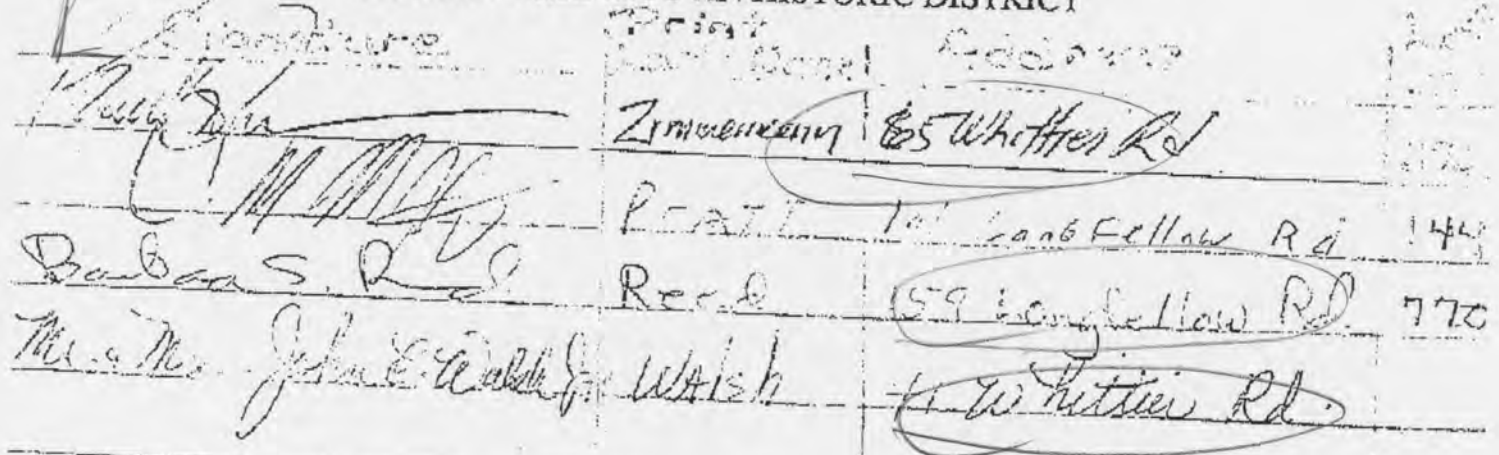 HISTORIC DISTRICT
Signature Print Last Name Address
Zimmermann 65 Whittier Rd
PRATT LongFellow Rd 144
Barbara S. Reed Reed 59 Longfellow Rd. 770
Mr. & Mrs. John E. Walsh Jr. WAlsh Whittier Rd.